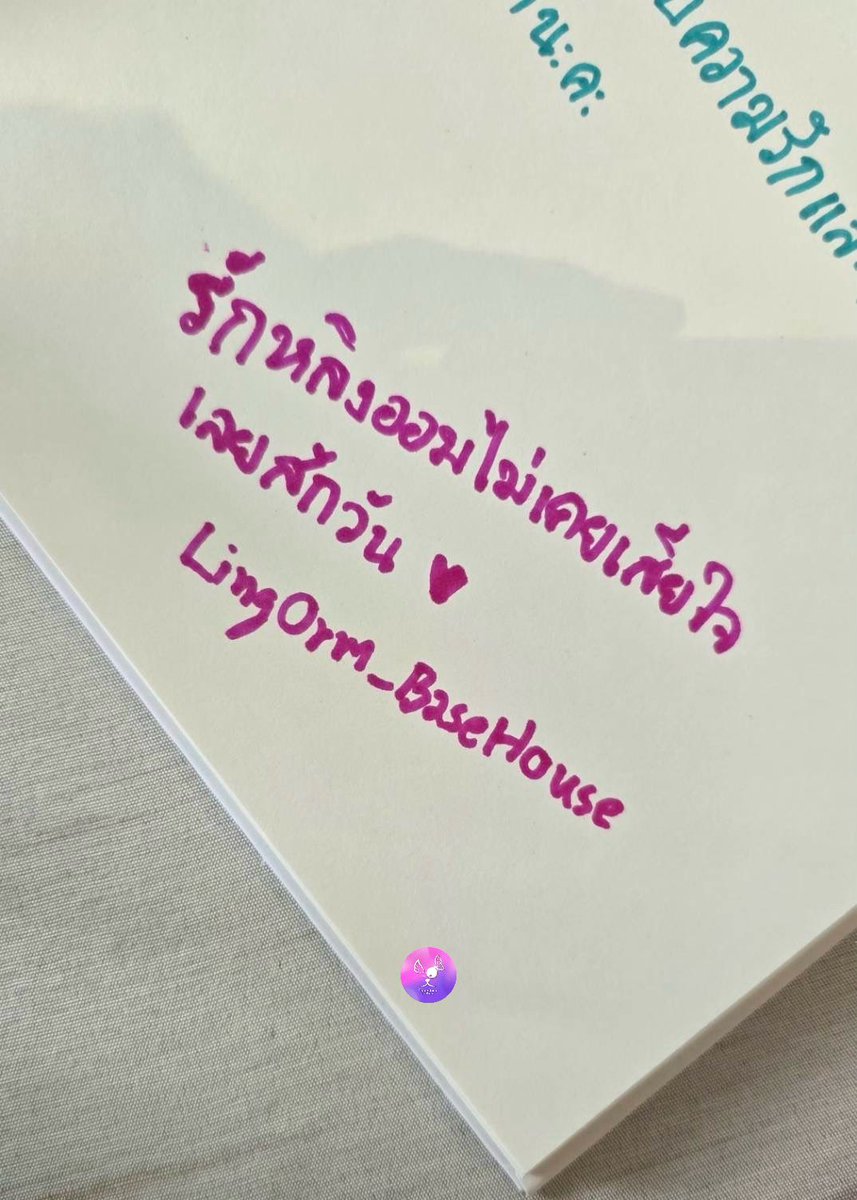 นะคะ
ความรัก
รักหลิงออมไม่เคยเสียใจ
เลยสักวัน ♥
LingOrm_BaseHouse